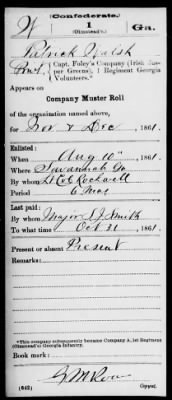 (Confederate.)
W 1 Ga.
(Olmstead's)
Patrick Walsh
Pvt, Capt. Foley's Company (Irish Jasper Greens), 1 Regiment Georgia Volunteers.*
Appears on
Company Muster Roll
of the organization named above,
for Nov & Dec, 1861.
Enlisted:
When Aug 10", 1861.
Where Savannah Ga
By whom Lt Col Rockwell
Period 6 Mos
Last paid:
By whom Major L J Smith
To what time Oct 31, 1861.
Present or absent Present
Remarks:
*This company subsequently became Company A, 1st Regiment (Olmstead's) Georgia Infantry.
Book mark:
(642) Copyist.